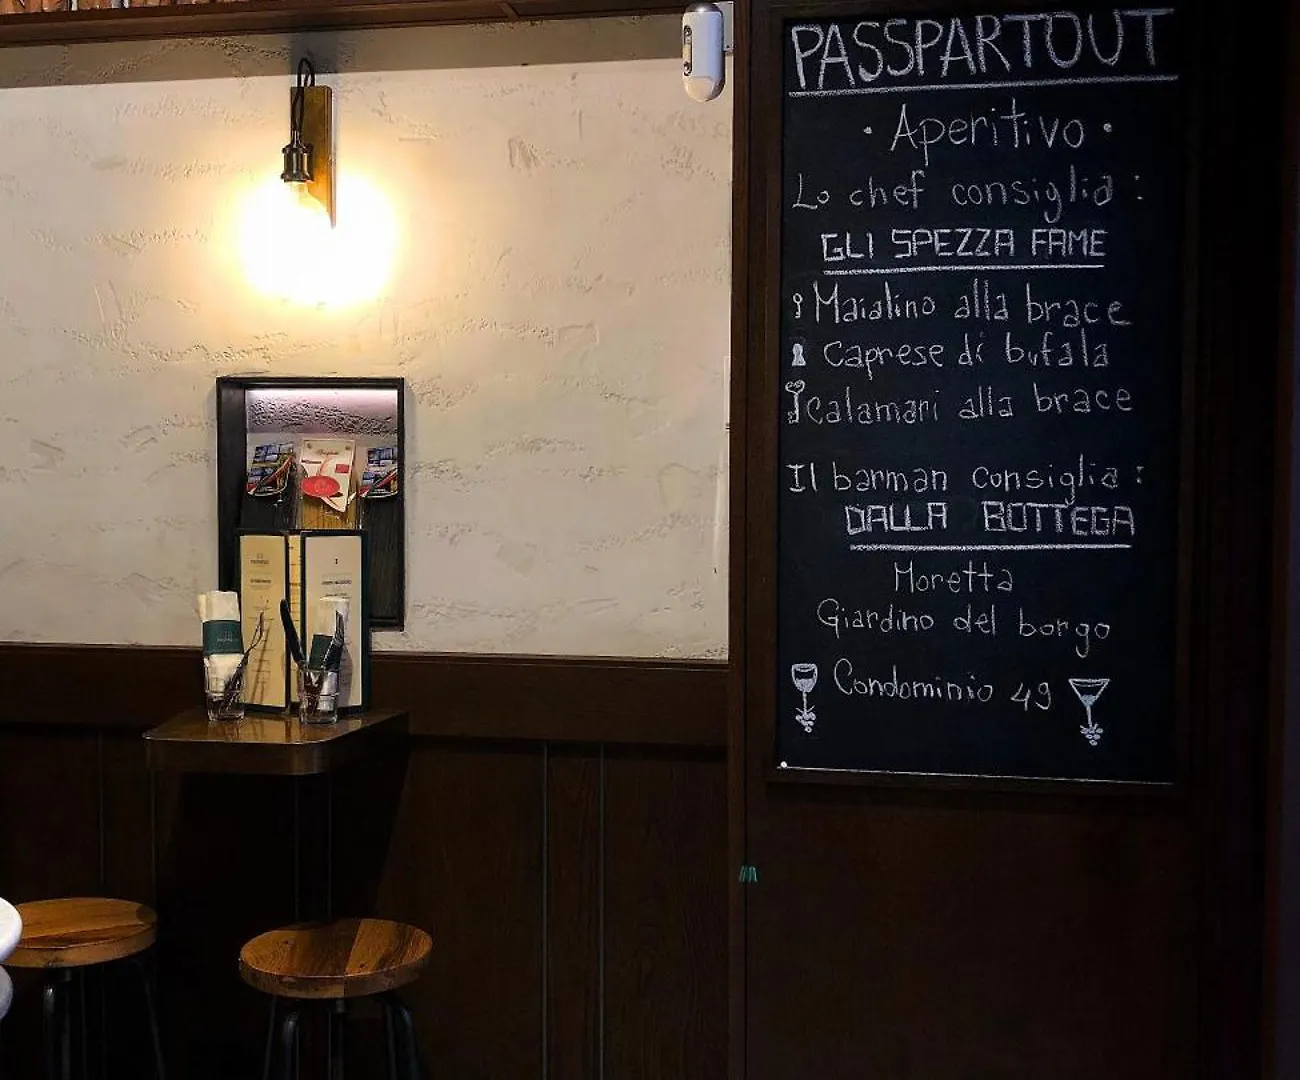 PASSPARTOUT
• Aperitivo •
Lo chef consiglia :
GLI SPEZZA FAME
Maialino alla brace
Caprese di bufala
Calamari alla brace
Il barman consiglia :
DALLA BOTTEGA
Moretta
Giardino del borgo
Condominio 49